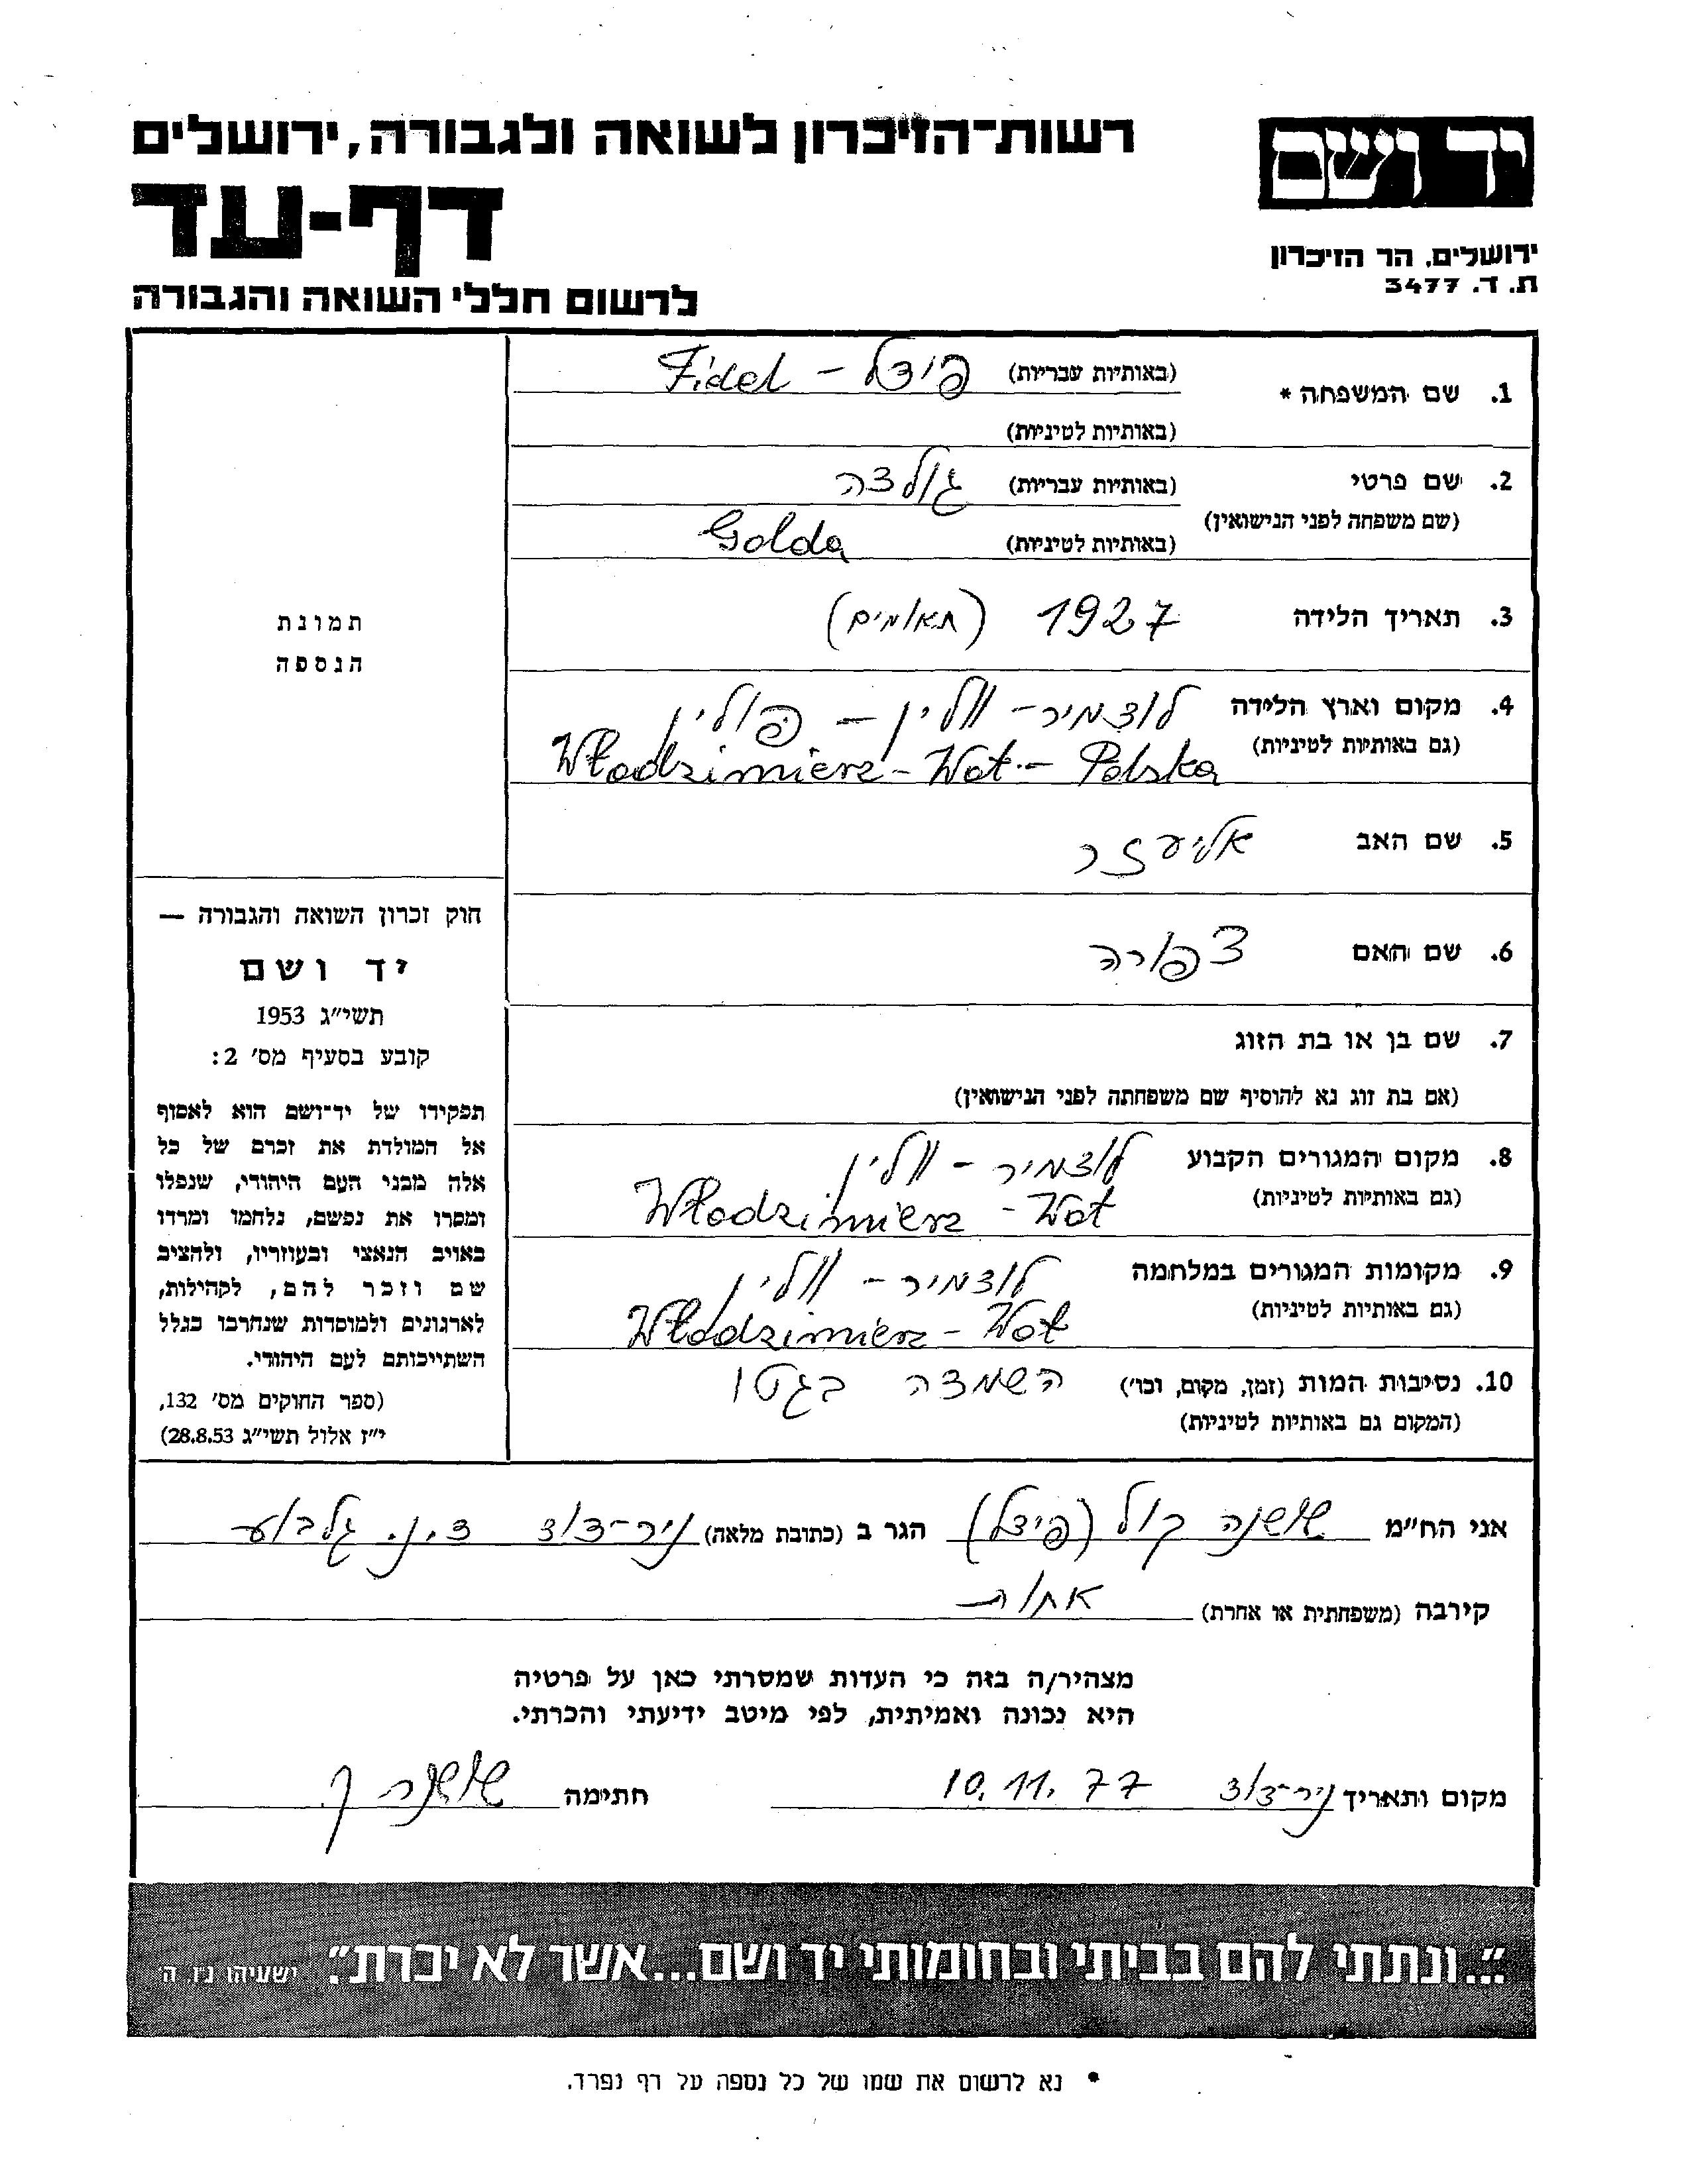 רשות־הזיכרון לשואה ולגבורה, ירושלים
יד ושם
דף-עד
ירושלים, הר הזיכרון
ת. ד. 3477
לרשום חללי השואה והגבורה
1. שם המשפחה * (באותיות עבריות) פידל - Fidel
(באותיות לטיניות)
2. שם פרטי (באותיות עבריות) גולדה
(שם משפחה לפני הנישואין)
(באותיות לטיניות) Golda
3. תאריך הלידה 1927 (תאומים)
תמונת
הנספה
4. מקום וארץ הלידה לודמיר - וולין - פולין
(גם באותיות לטיניות) Włodzimierz - Woł. - Polska
5. שם האב אליעזר
6. שם האם צפורה
7. שם בן או בת הזוג
(אם בת זוג נא להוסיף שם משפחתה לפני הנישואין)
8. מקום המגורים הקבוע לודמיר - וולין
(גם באותיות לטיניות) Włodzimierz - Woł
9. מקומות המגורים במלחמה לודמיר - וולין
(גם באותיות לטיניות) Włodzimierz - Woł
10. נסיבות המות (זמן, מקום, וכו') השמדה בגטו
(המקום גם באותיות לטיניות)
חוק זכרון השואה והגבורה —
יד ושם
תשי"ג 1953
קובע בסעיף מס' 2:
תפקידו של יד־ושם הוא לאסוף
אל המולדת את זכרם של כל
אלה מבני העם היהודי, שנפלו
ומסרו את נפשם, נלחמו ומרדו
באויב הנאצי ובעוזריו, ולהציב
שם וזכר להם, לקהילות,
לארגונים ולמוסדות שנחרבו בגלל
השתייכותם לעם היהודי.
(ספר החוקים מס' 132,
י"ז אלול תשי"ג 28.8.53)
אני הח"מ שושנה קול (פידל) הגר ב (כתובת מלאה) ניר-דוד ד.נ. גלבוע
קירבה (משפחתית או אחרת) אחות
מצהיר/ה בזה כי העדות שמסרתי כאן על פרטיה
היא נכונה ואמיתית, לפי מיטב ידיעתי והכרתי.
מקום ותאריך ניר-דוד 10.11.77 חתימה שושנה ק
"...ונתתי להם בביתי ובחומותי יד ושם...אשר לא יכרת". ישעיהו נו, ה'
* נא לרשום את שמו של כל נספה על דף נפרד.